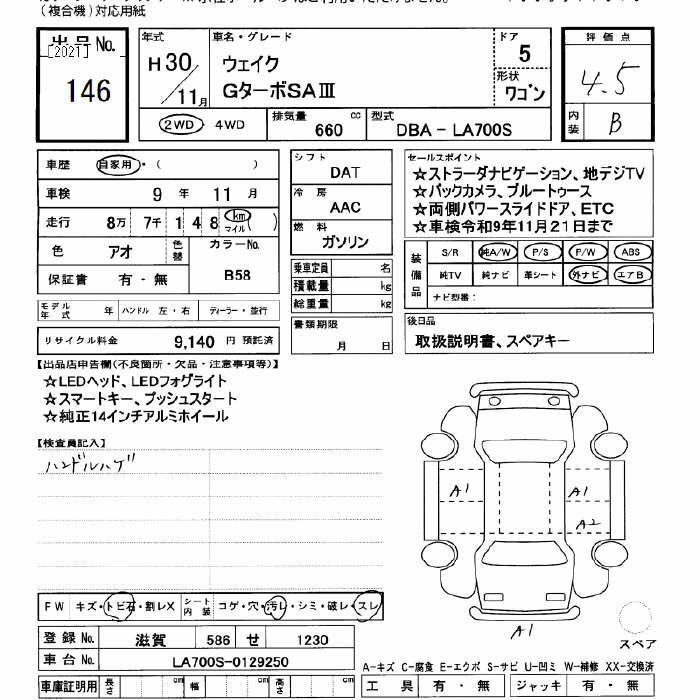 (複合機)対応用紙
出品No.
[2021]
146
年式
H30/11月
車名・グレード
ウェイク
GターボSAⅢ
ドア
5
形状
ワゴン
評価点
4.5
内装
B
2WD・4WD
排気量 660 cc
型式 DBA-LA700S
車歴 自家用・( )
車検 9年 11月
走行 8万 7千 1 4 8 km マイル ( )
色 アオ
色替
カラーNo. B58
保証書 有・無
モデル年式 年
ハンドル 左・右
ディーラー・並行
リサイクル料金 9,140 円 預託済
シフト
DAT
冷房
AAC
燃料
ガソリン
乗車定員 名
積載量 kg
総重量 kg
書類期限
月 日
セールスポイント
☆ストラーダナビゲーション、地デジTV
☆バックカメラ、ブルートゥース
☆両側パワースライドドア、ETC
☆車検令和9年11月21日まで
装備品
S/R 純A/W P/S P/W ABS
純TV 純ナビ 革シート 外ナビ エアB
ナビ型番:
後日品
取扱説明書、スペアキー
【出品店申告欄(不良箇所・欠品・注意事項等)】
☆LEDヘッド、LEDフォグライト
☆スマートキー、プッシュスタート
☆純正14インチアルミホイール
【検査員記入】
ハンドルハゲ
A1
A1
A2
A1
スペア
FW キズ・トビ石・割レX
シート内装 コゲ・穴・汚レ・シミ・破レ・スレ
登録No. 滋賀 586 せ 1230
車台No. LA700S-0129250
車庫証明用 長さ cm 幅 cm 高さ cm
A-キズ C-腐食 E-エクボ S-サビ U-凹ミ W-補修 XX-交換済
工具 有・無 ジャッキ 有・無